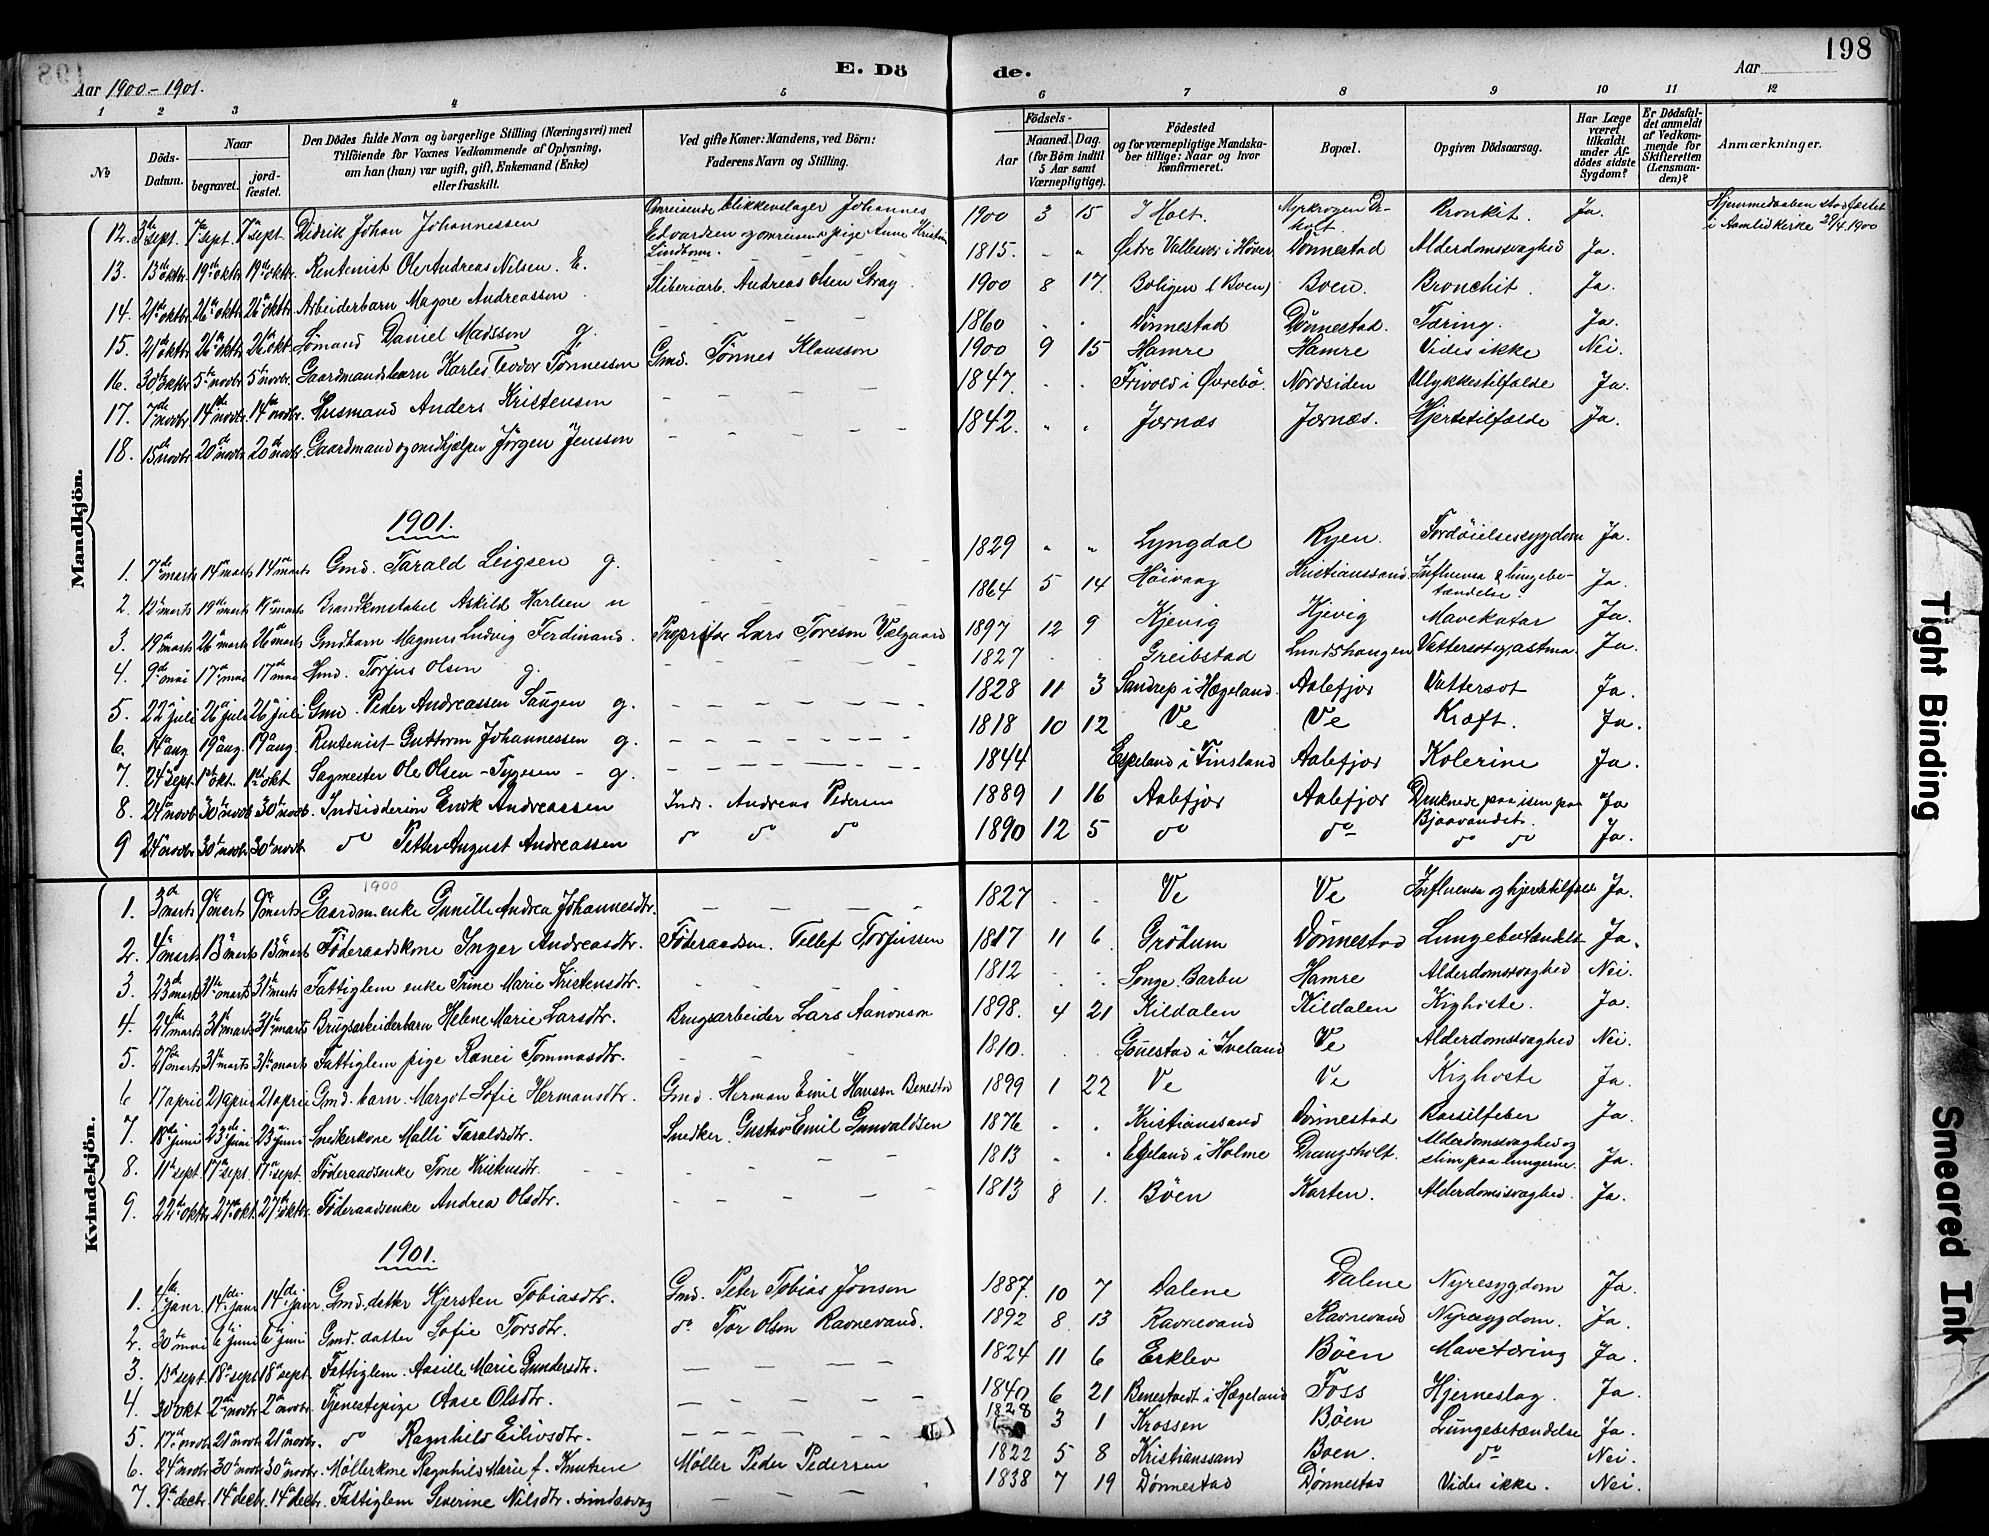 198
Aar 1900–1901.
E. Dö
de.
Aar
1 2 3 4 5 6 7 8 9 10 11 12
No
Döds-Datum.
Naar
begravet.
jord-fæstet.
Den Dödes fulde Navn og borgerlige Stilling (Næringsvei) med
Tilföiende for Voxnes Vedkommende af Oplysning,
om han (hun) var ugift, gift, Enkemand (Enke)
eller fraskilt.
Ved gifte Koner: Mandens, ved Börn:
Faderens Navn og Stilling.
Födsels-
Aar
Maaned. Dag.
(for Börn indtil
5 Aar samt
Værnepligtige).
Födested
og for værnepligtige Mandska-
ber tillige: Naar og hvor
konfirmeret.
Bopæl.
Opgiven Dödsaarsag.
Har Læge
været
tilkaldt
under Af-
dödes sidste
Sygdom?
Er Dödsfal-
det anmeldt
af Vedkom-
mende for
Skifteretten
(Lensman-
den)?
Anmærkninger.
Mandkjön.
12. 3die sept. 7de sept. 7de sept. Didrik Johan Johannessen Omreisende blikkenslager Johannes Edvardsen og omreisende pige Anne Kristine Lindbom. 1900 3 15 I Holt. Myrkrogen Dr-holt. Bronkit. Ja. Hjemmedaaben stadfæstet i Aamlid kirke 29/4 1900
13. 13de oktbr. 19de oktbr 19de oktbr Rentenist Ole Andreas Nilsen. E. 1815. " " Østre Vallesver i Høver Dønnestad Alderdomsvaghed Ja.
14. 21de oktbr 26de oktbr 26de oktbr Arbeiderbarn Magne Andreassen Sliberiarb. Andreas Olsen Stray 1900 8 17 Boligen (Boen) Boen. Bronchit. Ja.
15. 21de oktbr 26de oktbr 26de okt. Sømand Daniel Madsson g. – – – – 1860 Dønnestad Dønnestad. Tæring. Ja.
16. 30te oktbr 5te novbr 5te novbr. Gaardmandsbarn Karles Teodor Tønnesson Gmd. Tønnes Klausson 1900 9 15 Hamre Hamre Vides ikke Nei.
17. 7de novbr 14de novbr. 14de novbr. Husmand Anders Kristensen – – – – 1847. Frivold i Øvrebø Nordsiden Ulykkestilfælde Ja.
18. 15de novbr 20de novbr. 20de novbr. Gaardmand og medhjælper Jørgen Jensson – – – – 1842. " " Jærnæs Jærnæs. Hjertetilfælde Ja.
1901.
1. 7de marts 14de marts 14de marts Gmd. Tarald Leigsen g. – – – – 1829 " " Lyngdal Ryen. Fordøielsessygdom Ja.
2. 12te marts 19de marts 19de marts Brandkonstabel Askild Karlsen u – – – – 1864 5 14 Høivaag Kristianssand Influensa & lungebe-tændelse. Ja.
3. 19de marts 26de marts 26de marts Gmdbarn Magnus Ludvig Ferdinand. Proprietær Lars Toreson Valgaard 1897 12 9 Kjevig Kjevig Mavekatar Ja.
4. 9de mai 17de mai 17de mai Hmd. Torjus Olsen g. – – – – 1827 Greibstad Lundshaugen Vattersot og astma. Ja.
5. 22de juli 26de juli 26de juli Gmd. Peder Andreassen Saugen g. – – – – 1828 11 3 Sandrep i Hægeland. Aalefjær Vattersot Ja.
6. 14de aug 19de aug. 19de aug. Rentenist Guttorm Johannessen g. – – – – 1818 10 12 Ve Ve Kræft. Ja.
7. 24de sept. 1ste okt. 1ste okt Sagmester Ole Olsen – Tygesen – g. – – – – 1844 Espeland i Finsland Aalefjær Kolerine Ja.
8. 24de novb 30te novb 30te novb. Indsidderson Enok Andreassen Inds. Andreas Pedersen 1889 1 16 Aalefjær Aalefjær Druknede paa isen paa Bjaavandet. Ja
9 24de novbr 30te novbr 30te novb. do Petter August Andreassen do do do 1890 12 5 do do do do Ja.
Kvindekjön.
1900
1. 3die marts 9de marts 9de marts Gaardm.enke Gunille Andrea Johannesdtr. – – – – 1827 Ve Ve Influensa og hjertetilfælde Ja.
2. 4de marts 13de marts 13de marts Føderaadskone Inger Andreasdtr. Føderaadsm. Tellef Torjussen 1817 11 6 Grødum Dønnestad Lungebetændelse Ja.
3. 23de marts 31te marts 31te marts Fattiglem enke Trine Marie Kristensdtr. – – – 1812 Songe Barbu Hamre Alderdomssvaghed Nei.
4. 24de marts 31te marts 31te marts Brugsarbeiderbarn Helene Marie Larsdtr. Brugsarbeider Lars Aanonson 1898. 4 21 Kildalen Kildalen Kighoste. Ja.
5. 27de marts 31te marts 31te marts Fattiglem pige Ranei Tommasdtr. – – – 1810. Gouestad i Iveland Ve Alderdomssvaghed Nei.
6 17 april 21 april 21 april Gmd. barn. Margot Sofie Hermansdtr. Gmd. Herman Emil Hansson Benestad 1899 1 22 Ve Ve Kighoste Ja.
7. 18de juni 23de juni 23 juni Snedkerkone Malli Taraldsdtr. Snedker. Gustav Emil Gunvaldsen 1876 Kristianssand Dønnestad Barselfeber Ja.
8. 11te sept. 17de sept. 17de sept. Føderaadsenke Tone Kristensdtr. – – – – 1813 Egeland i Holme Drangsholt. Alderdomssvaghed og slim paa lungerne. Ja.
9. 22de oktbr 27de okt. 27de oktbr. Føderaadsenke Andrea Olsdtr. – – – – 1813 8 1. Bøen Karten. Alderdomssvaghed. Ja.
1901.
1. janr. 14de janr 14de janr. Gmd. detter Kjersten Tobiasdtr. Gmd. Peter Tobias Jonson 1887. 10 7 Dalene Dalene Nyresygdom Ja.
2. 30te mai 6te juni 6te juni Gmd. datter Sofie Torsdtr. do Tor Olsen Ravnevand. 1892 8 13 Ravnevand Ravnevand Nyresygdom. Ja.
3. 13de sept. 18de sept 18de sept. Fattiglem. Aasille Marie Gundersdtr. – – – – 1824 11 6 Erklev Bøen Mavetæring Ja.
4. 30te okt 2den novbr 2den novbr. Tjenestepige Aase Olsdtr. – – – – 1840 6 21 Benestvedt i Hægeland Foss Hjerneslag. Ja.
5. 17de novbr 21de novbr 21de novbr. do Ragnhild Eilivsdtr. – – – – 1828 3 1 Krossen Bøen Lungebetændelse Ja.
6. 24de novbr 30te novbr 30te novbr. Møllerkone Ragnhild Marie f. Knutsen Møller Peder Pedersen 1822 5 8 Kristianssand Boen. do Nei.
7. 9de decbr 14de decbr. 14de decbr. Fattiglem Severine Nilsdtr. sindssvag – – – – 1838 7 19 Dønnestad Dønnestad Vides ikke. Nei.
Tight Binding
Smeared Ink